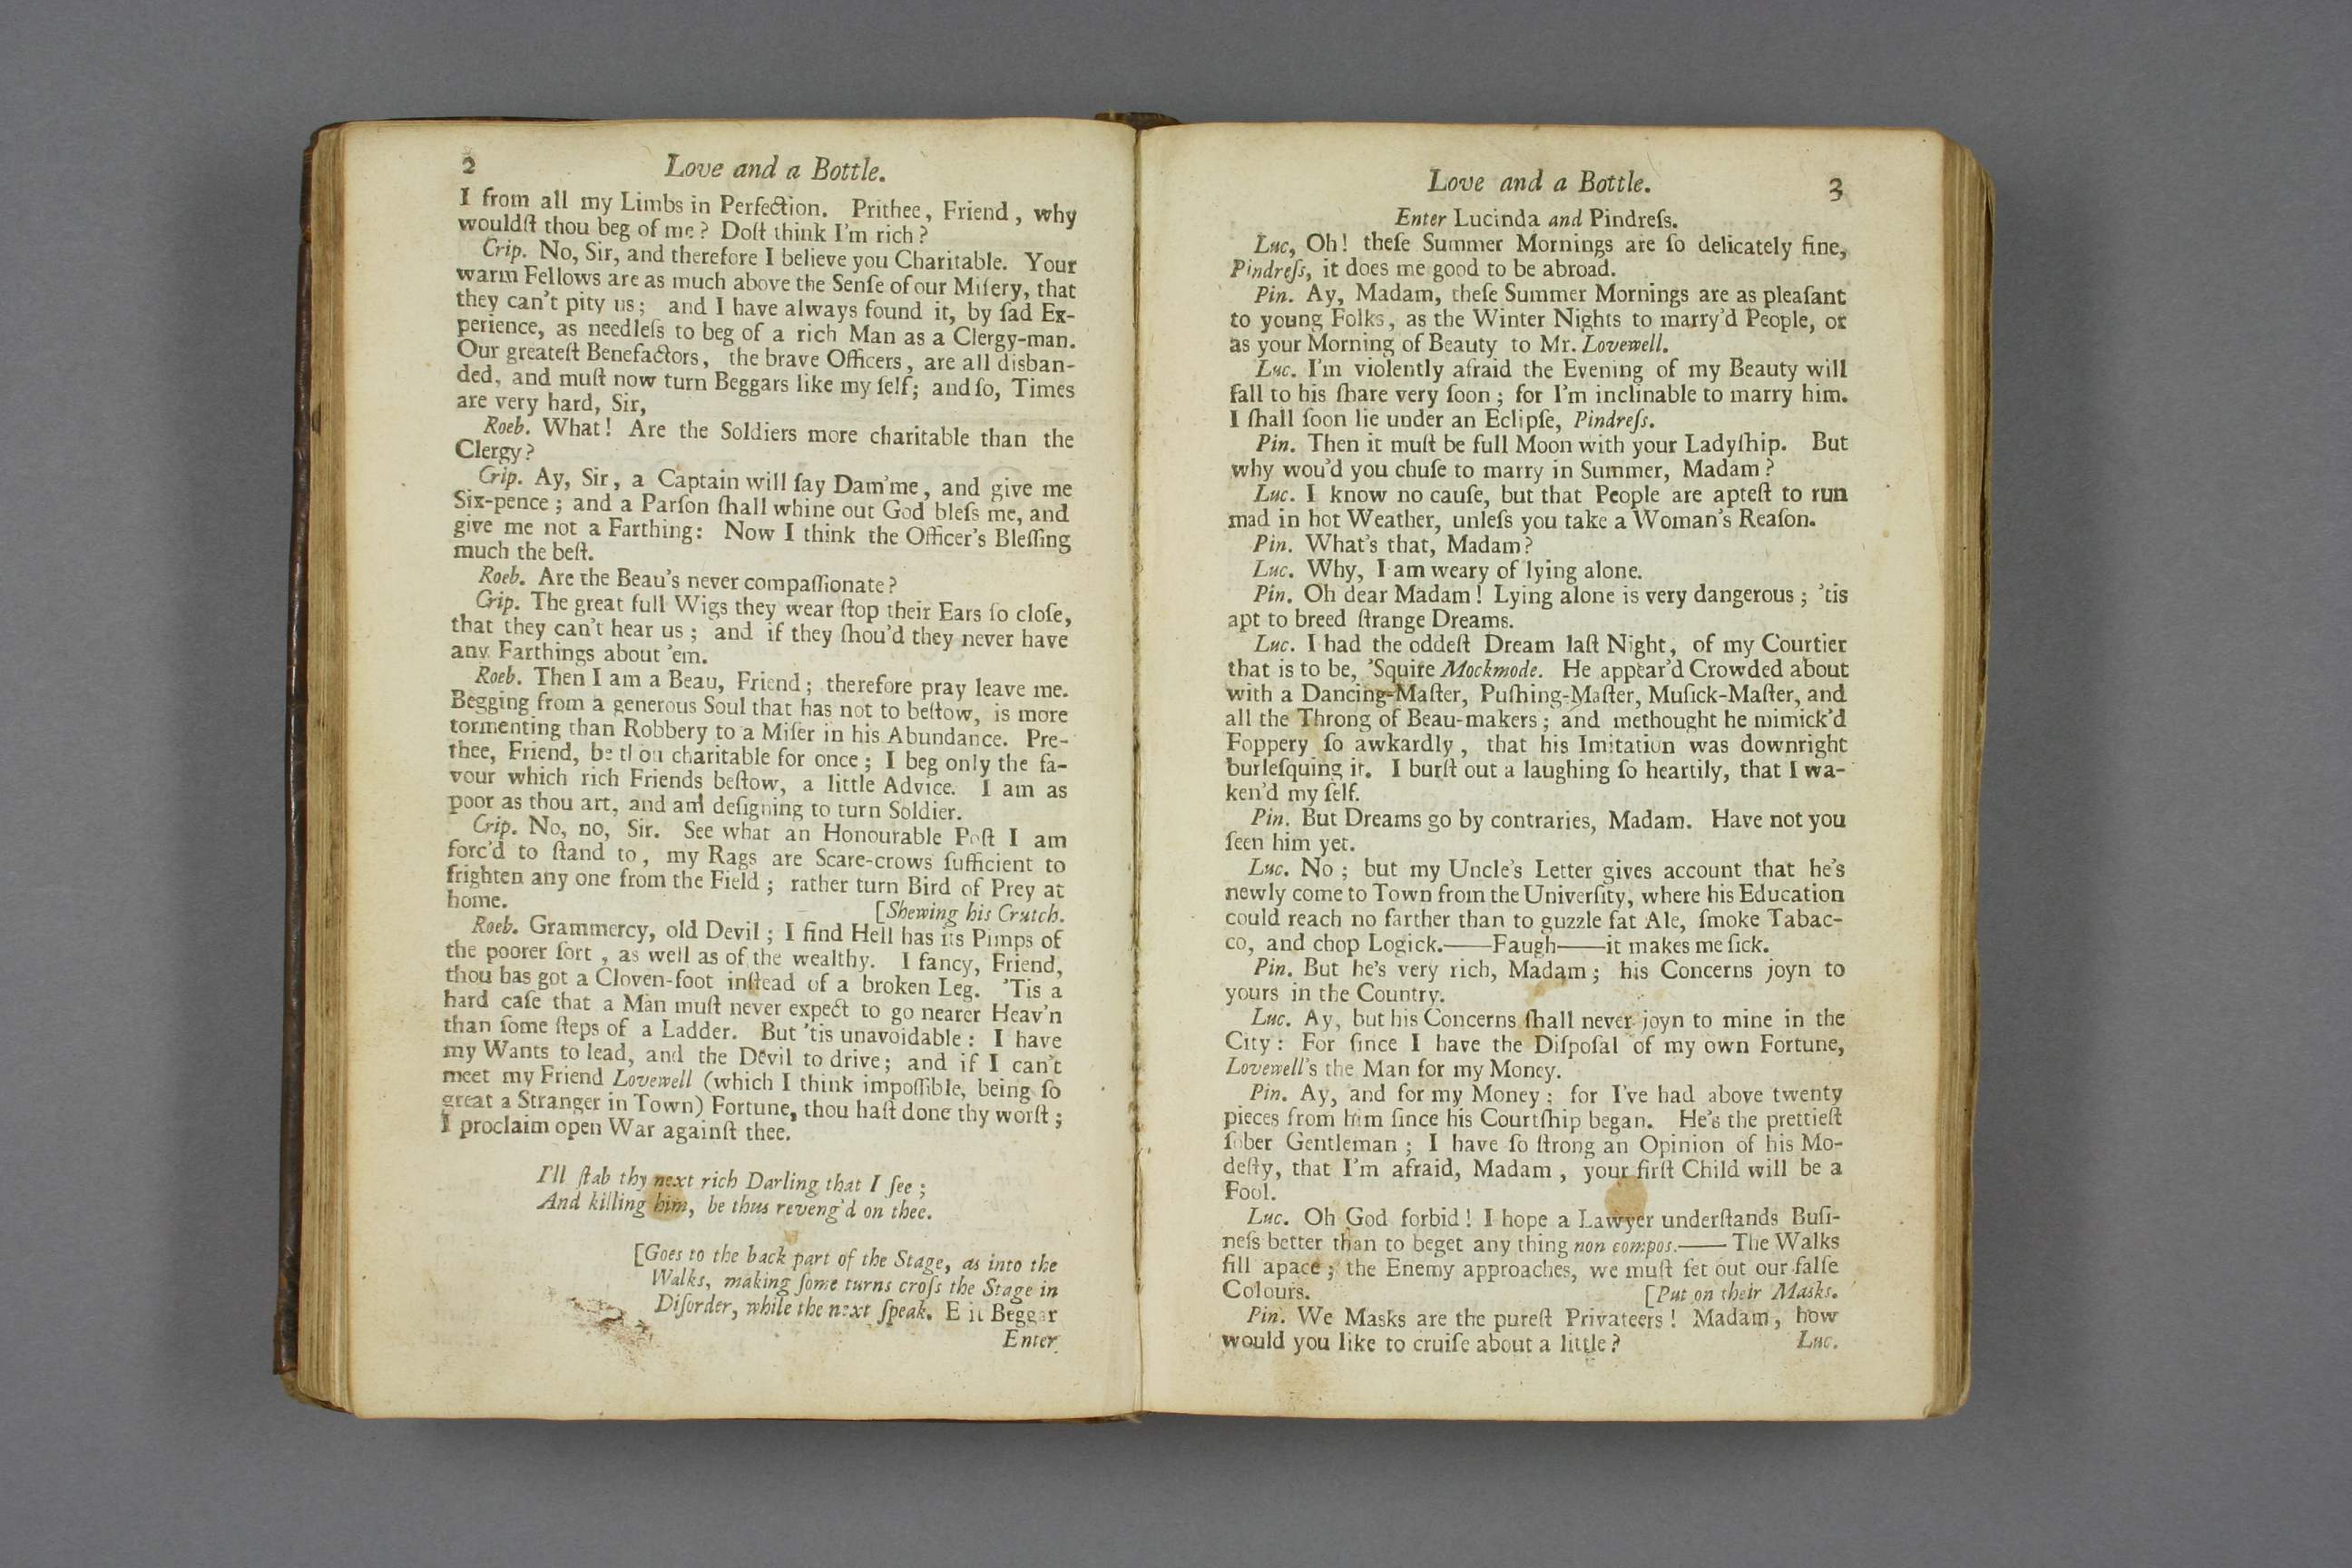 2
Love and a Bottle.
I from all my Limbs in Perfection. Prithee, Friend, why
wouldſt thou beg of me? Doſt think I'm rich?
Crip. No, Sir, and therefore I believe you Charitable. Your
warm Fellows are as much above the Senſe of our Miſery, that
they can't pity us; and I have always found it, by ſad Ex-
perience, as needleſs to beg of a rich Man as a Clergy-man.
Our greateſt Benefactors, the brave Officers, are all disban-
ded, and muſt now turn Beggars like my ſelf; and ſo, Times
are very hard, Sir,
Roeb. What! Are the Soldiers more charitable than the
Clergy?
Crip. Ay, Sir, a Captain will ſay Dam'me, and give me
Six-pence; and a Parſon ſhall whine out God bleſs me, and
give me not a Farthing: Now I think the Officer's Bleſſing
much the beſt.
Roeb. Are the Beau's never compaſſionate?
Crip. The great full Wigs they wear ſtop their Ears ſo cloſe,
that they can't hear us; and if they ſhou'd they never have
any Farthings about 'em.
Roeb. Then I am a Beau, Friend; therefore pray leave me.
Begging from a generous Soul that has not to beſtow, is more
tormenting than Robbery to a Miſer in his Abundance. Pre-
thee, Friend, be thou charitable for once; I beg only the fa-
vour which rich Friends beſtow, a little Advice. I am as
poor as thou art, and am deſigning to turn Soldier.
Crip. No, no, Sir. See what an Honourable Poſt I am
forc'd to ſtand to, my Rags are Scare-crows ſufficient to
frighten any one from the Field; rather turn Bird of Prey at
home. [Shewing his Crutch.
Roeb. Grammercy, old Devil; I find Hell has its Pimps of
the poorer ſort, as well as of the wealthy. I fancy, Friend,
thou has got a Cloven-foot inſtead of a broken Leg. 'Tis a
hard caſe that a Man muſt never expect to go nearer Heav'n
than ſome ſteps of a Ladder. But 'tis unavoidable: I have
my Wants to lead, and the Devil to drive; and if I can't
meet my Friend Lovewell (which I think impoſſible, being ſo
great a Stranger in Town) Fortune, thou haſt done thy worſt;
I proclaim open War againſt thee.
I'll ſtab thy next rich Darling that I ſee;
And killing him, be thus reveng'd on thee.
[Goes to the back part of the Stage, as into the
Walks, making ſome turns croſs the Stage in
Diſorder, while the next ſpeak. E it Beggar
Enter
Love and a Bottle.
3
Enter Lucinda and Pindreſs.
Luc, Oh! theſe Summer Mornings are ſo delicately fine,
Pindreſs, it does me good to be abroad.
Pin. Ay, Madam, theſe Summer Mornings are as pleaſant
to young Folks, as the Winter Nights to marry'd People, or
as your Morning of Beauty to Mr. Lovewell.
Luc. I'm violently afraid the Evening of my Beauty will
fall to his ſhare very ſoon; for I'm inclinable to marry him.
I ſhall ſoon lie under an Eclipſe, Pindreſs.
Pin. Then it muſt be full Moon with your Ladyſhip. But
why wou'd you chuſe to marry in Summer, Madam?
Luc. I know no cauſe, but that People are apteſt to run
mad in hot Weather, unleſs you take a Woman's Reaſon.
Pin. What's that, Madam?
Luc. Why, I am weary of lying alone.
Pin. Oh dear Madam! Lying alone is very dangerous; 'tis
apt to breed ſtrange Dreams.
Luc. I had the oddeſt Dream laſt Night, of my Courtier
that is to be, 'Squire Mockmode. He appear'd Crowded about
with a Dancing-Maſter, Puſhing-Maſter, Muſick-Maſter, and
all the Throng of Beau-makers; and methought he mimick'd
Foppery ſo awkardly, that his Imitation was downright
burleſquing it. I burſt out a laughing ſo heartily, that I wa-
ken'd my ſelf.
Pin. But Dreams go by contraries, Madam. Have not you
ſeen him yet.
Luc. No; but my Uncle's Letter gives account that he's
newly come to Town from the Univerſity, where his Education
could reach no farther than to guzzle fat Ale, ſmoke Tabac-
co, and chop Logick.——Faugh——it makes me ſick.
Pin. But he's very rich, Madam; his Concerns joyn to
yours in the Country.
Luc. Ay, but his Concerns ſhall never joyn to mine in the
City: For ſince I have the Diſpoſal of my own Fortune,
Lovewell's the Man for my Money.
Pin. Ay, and for my Money; for I've had above twenty
pieces from him ſince his Courtſhip began. He's the prettieſt
ſober Gentleman; I have ſo ſtrong an Opinion of his Mo-
deſty, that I'm afraid, Madam, your firſt Child will be a
Fool.
Luc. Oh God forbid! I hope a Lawyer underſtands Buſi-
neſs better than to beget any thing non compos.—— The Walks
fill apace; the Enemy approaches, we muſt ſet out our falſe
Colours. [Put on their Masks.
Pin. We Masks are the pureſt Privateers! Madam, how
would you like to cruiſe about a little? Luc.